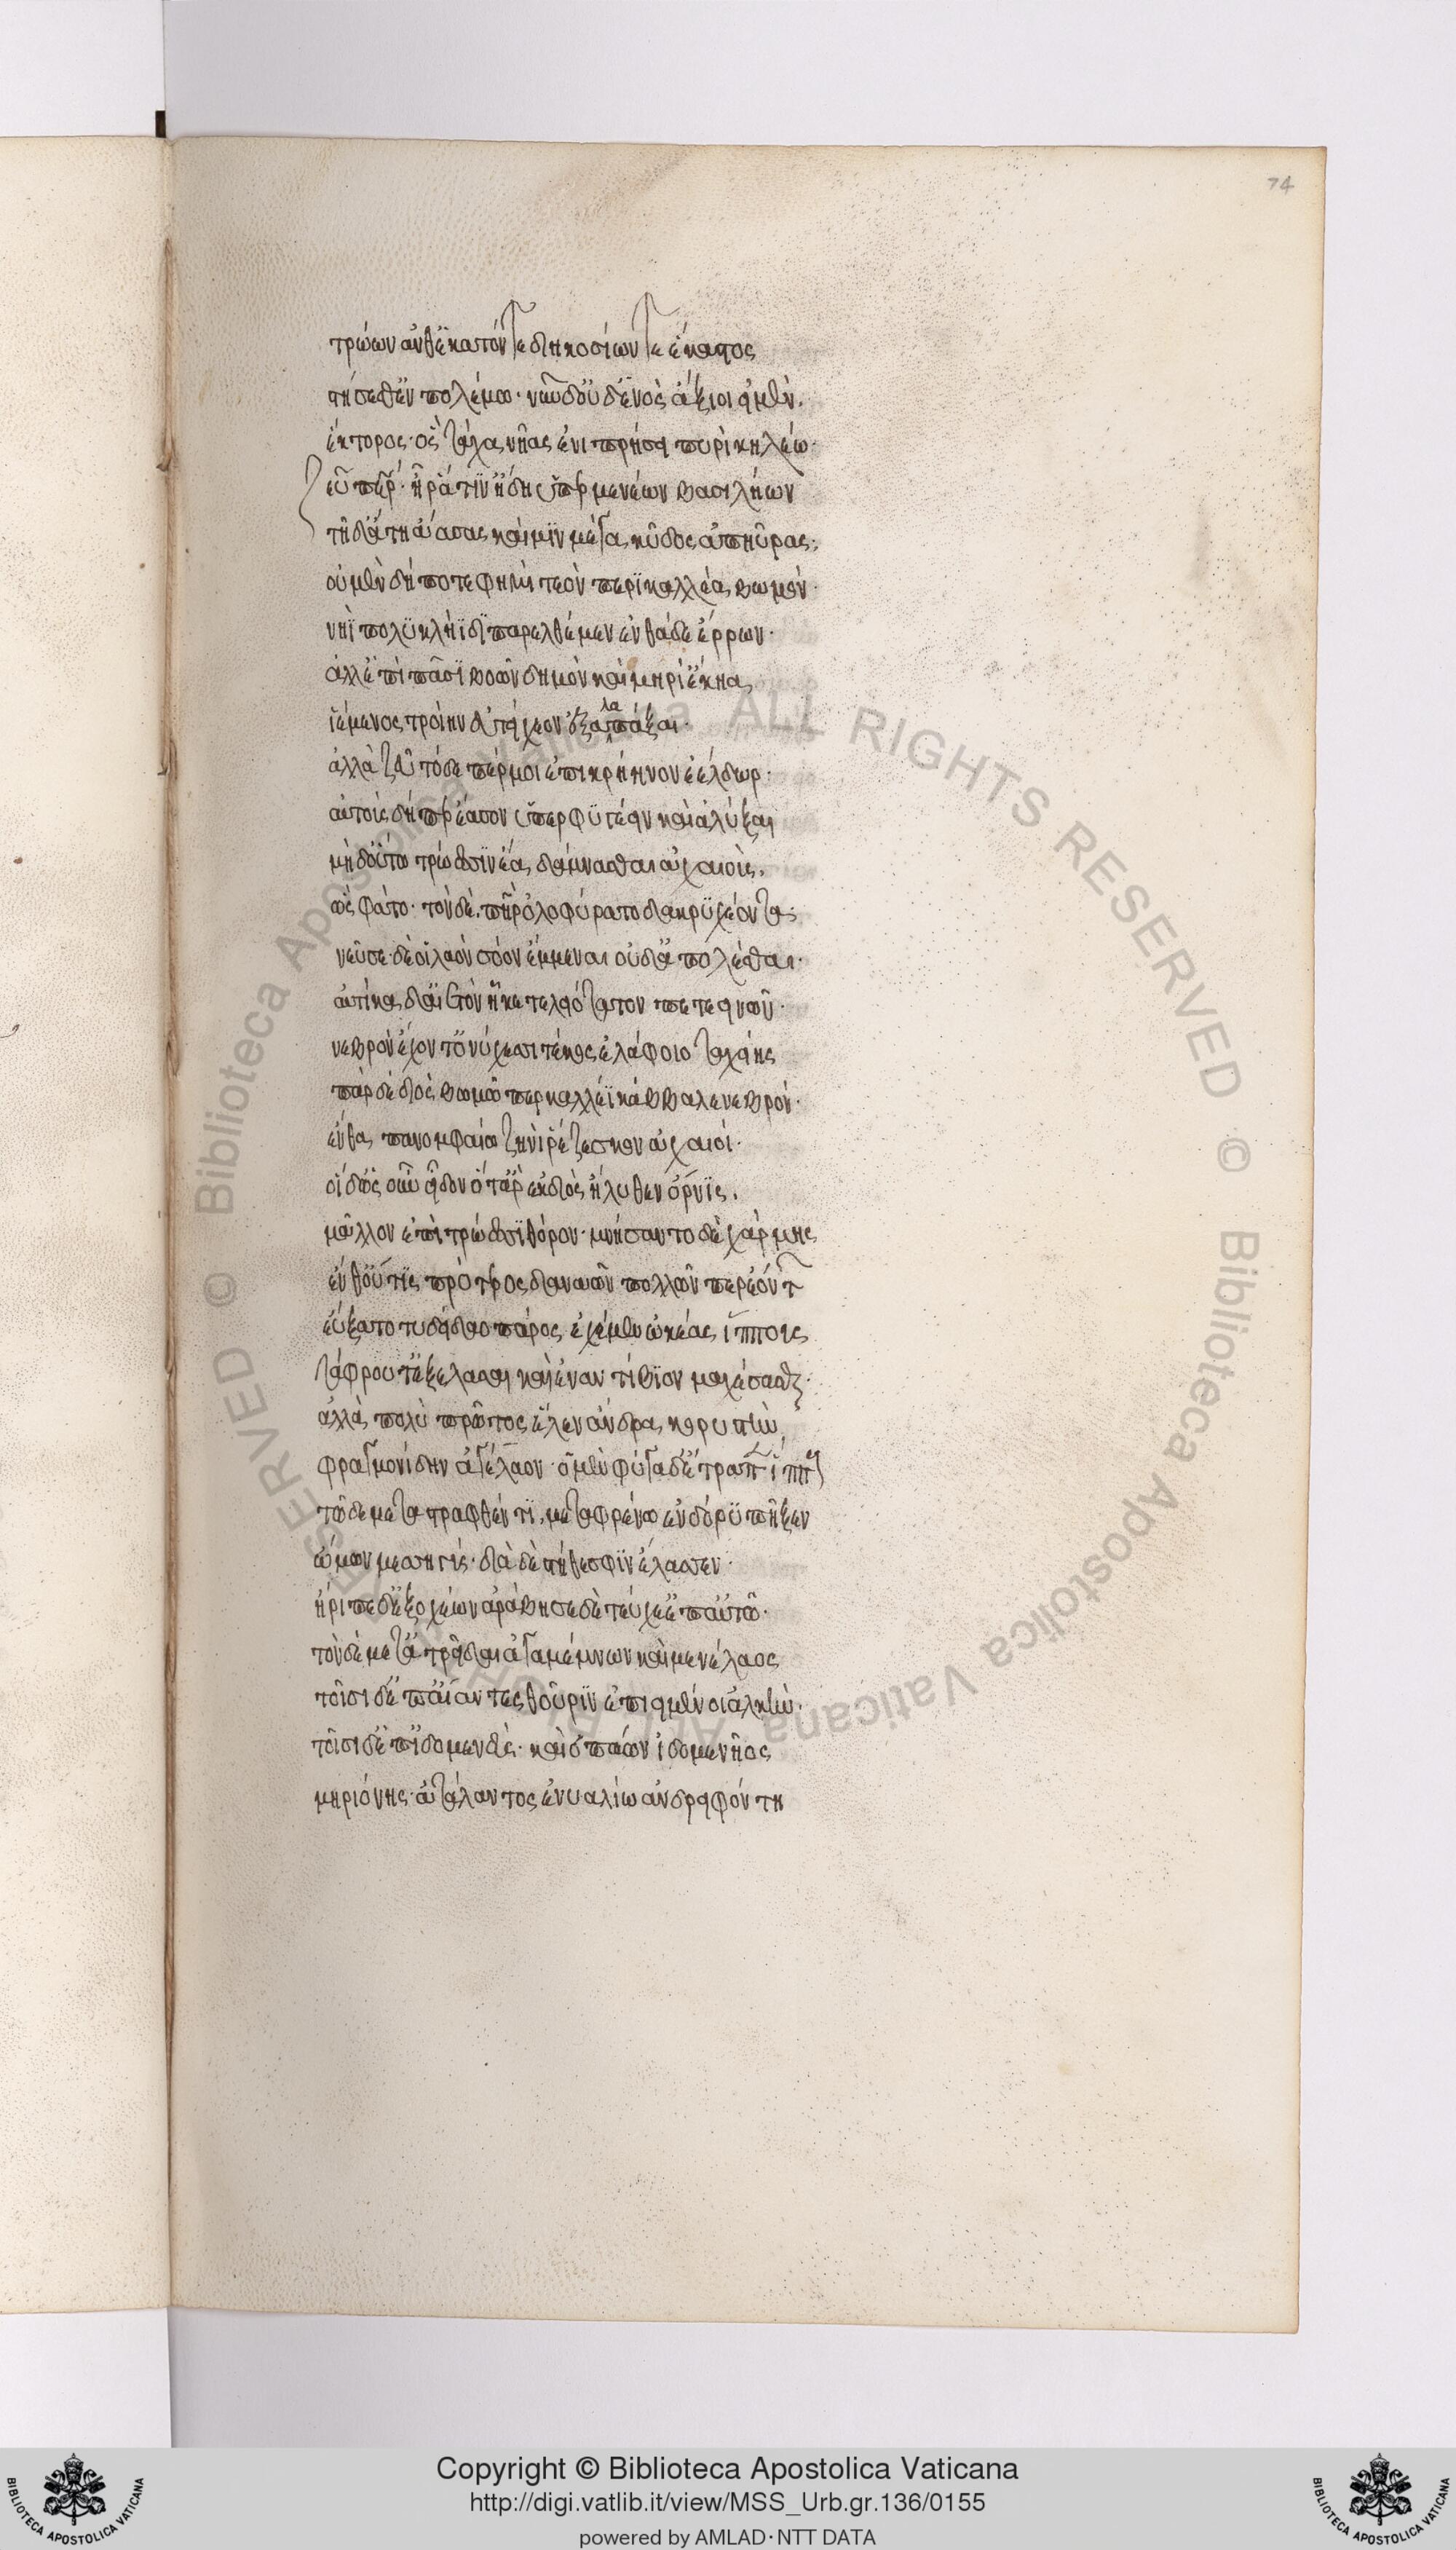 74
τρώων ἀνθ' ἑκατόν τε διηκοσίων τε ἕκαστος
στήσεσθ' ἐν πολέμω· νῦν δ' οὐδ' ἑνὸς ἄξιοι εἰμὲν.
ἕκτορος· ὃς τάχα νῆας ἐνιπρήσει πυρὶ κηλέω·
ζεῦ πάτερ· ἦ ῥά τιν' ἤδη ὑπερμενέων βασιλήων
τῆδ' ἄτη ἄασας καί μιν μέγα κῦδος ἀπηῦρας;
οὐ μὲν δή ποτε φημὶ τεὸν περικαλλέα βωμὸν·
νηῒ πολυκλήϊδι παρελθέμεν ἐνθάδε ἔρρων·
ἀλλ' ἐπὶ πᾶσι βοῶν δημὸν καὶ μηρί' ἔκηα
ἱέμενος τροίην εὐτείχεον ἐξαλαπάξαι·
ἀλλὰ ζεῦ τόδε πέρ μοι ἐπικρήηνον ἐέλδωρ·
αὐτοὺς δή περ ἔασον ὑπεκφυγέειν καὶ ἀλύξαι
μὴ δ' οὕτω τρώεσσιν ἔα δάμνασθαι ἀχαιούς.
ὣς φάτο· τὸν δὲ πατὴρ ὀλοφύρατο δακρυχέοντα·
νεῦσε δὲ οἱ λαὸν σόον ἔμμεναι οὐδ' ἀπολέσθαι·
αὐτίκα δ' αἰετὸν ἧκε τελειότατον πετεηνῶν·
νεβρὸν ἔχοντ' ὀνύχεσσι τέκος ἐλάφοιο ταχείης
πὰρ δὲ διὸς βωμῶ περικαλλέϊ κάββαλε νεβρόν·
ἔνθα πανομφαίω ζηνὶ ῥέζεσκον ἀχαιοί·
οἱ δ' ὡς οὖν εἶδον ὅτ' ἄρ' ἐκ διὸς ἤλυθεν ὄρνις.
μᾶλλον ἐπὶ τρώεσσι θόρον· μνήσαντο δὲ χάρμης
ἔνθ' οὔ τις πρότερος δαναῶν πολλῶν περ ἐόντων
εὔξατο τυδείδαο πάρος ἐχέμεν ὠκέας ἵππους
τάφρου τ' ἐξελάσαι καὶ ἐναντίβιον μαχέσασθαι·
ἀλλὰ πολὺ πρῶτος ἕλεν ἄνδρα κορυστὴν
φραγμονίδην ἀγέλαον· ὁ μὲν φύγαδ' ἔτραπεν ἵππους
τῶ δὲ μεταστραφθέντι, μεταφρένω ἐν δόρυ πῆξεν
ὤμων μεσσηγύς· διὰ δὲ στήθεσφιν ἔλασσεν·
ἤριπε δ' ἐξ ὀχέων ἀράβησε δὲ τεύχε' ἐπ' αὐτῶ·
τὸν δὲ μετ' ἀτρεῖδαι ἀγαμέμνων καὶ μενέλαος
τοῖσι δ' ἐπ' αἴαντες θοῦριν ἐπιειμένοι ἀλκὴν·
τοῖσι δ' ἐπ' ἰδομενεὺς· καὶ ὀπάων ἰδομενῆος
μηριόνης· ἀτάλαντος ἐνυαλίω ἀνδρειφόντη
Copyright © Biblioteca Apostolica Vaticana
http://digi.vatlib.it/view/MSS_Urb.gr.136/0155
powered by AMLAD·NTT DATA